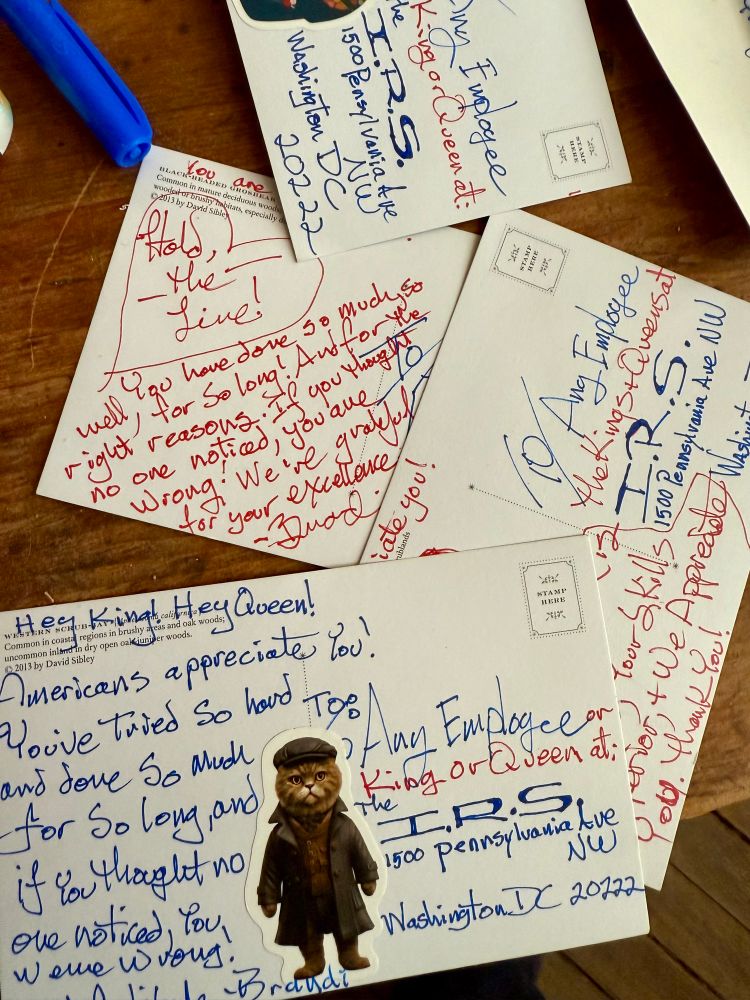 Any Employee
King or Queen at:
the
I.R.S.
1500 Pennsylvania Ave
NW
Washington DC
20222
STAMP
HERE
You are
BLACK-HEADED GROSBEAK
Common in mature deciduous
wooded or brushy habitats, especially
© 2013 by David Sibley
Hold,
-the-
Line!
You have done so much, so
well, for so long! And for the
right reasons. If you thought
no one noticed, you are
wrong! We're grateful
for your excellence
TO
STAMP
HERE
TO/ Any Employee
the Kings + Queens at
I.R.S.
1500 Pennsylvania Ave NW
you!
Your Skills
+ We Appreciate
You. Thank You!
Hey King! Hey Queen!
WESTERN SCRUB-JAY
Common in coastal regions in brushy areas and oak woods;
uncommon inland in dry open oak-juniper woods.
© 2013 by David Sibley
Americans appreciate You!
You've Tried So hard
and done So Much
for So long, and
if you thought no
one noticed, You
were wrong!
Brandi
STAMP
HERE
To:
Any Employee or
King or Queen at:
The
I.R.S.
1500 Pennsylvania Ave
NW
Washington DC 20222